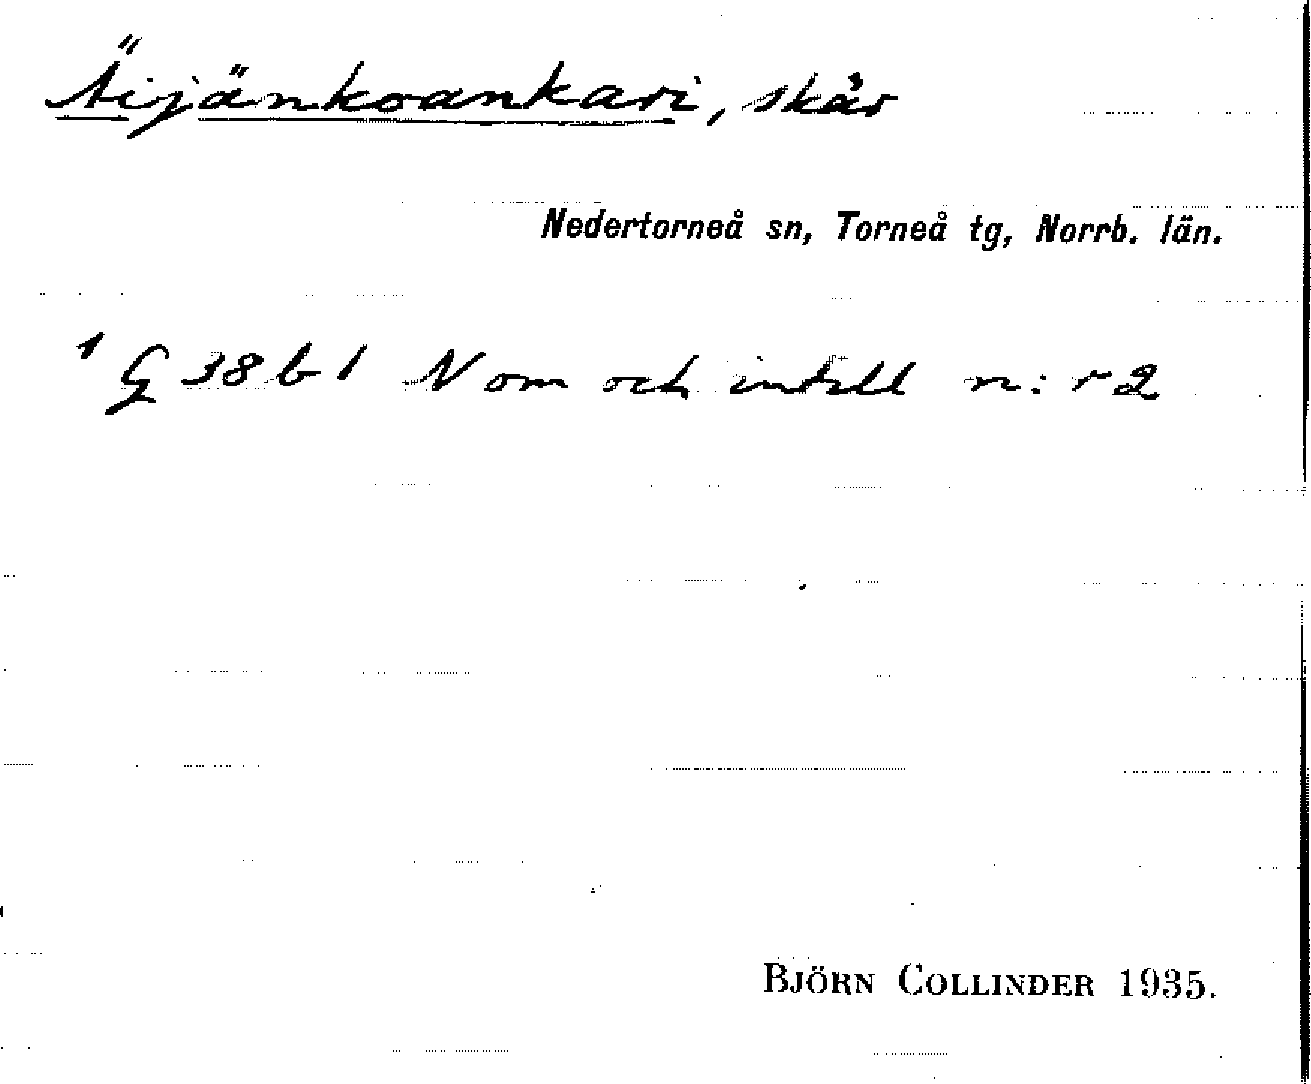 Äijänkoankari, skär
Nedertorneå sn, Torneå tg, Norrb. län.
1 G 38 b 1 N om och intill n:r 2
BJÖRN COLLINDER 1935.